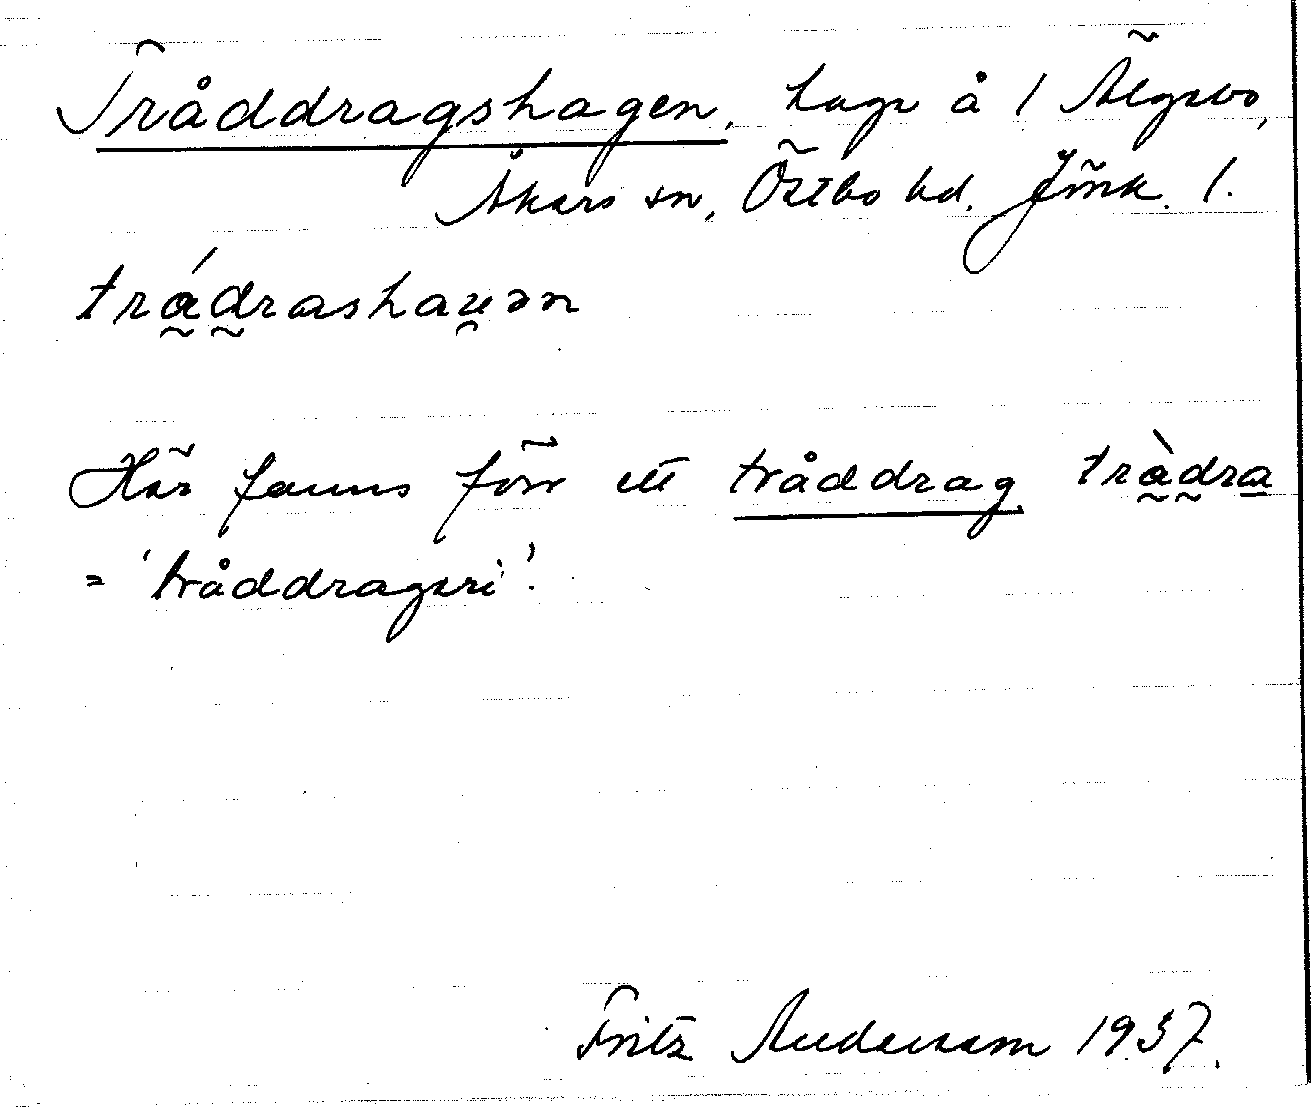 Tråddragshagen, hage å 1 Älgabo,
Åkers sn, Östbo hd. Jmk. l.
trádrashauən
Här fanns förr ett tråddrag tràdra
= 'tråddrageri'.
Fritz Anderson 1937.